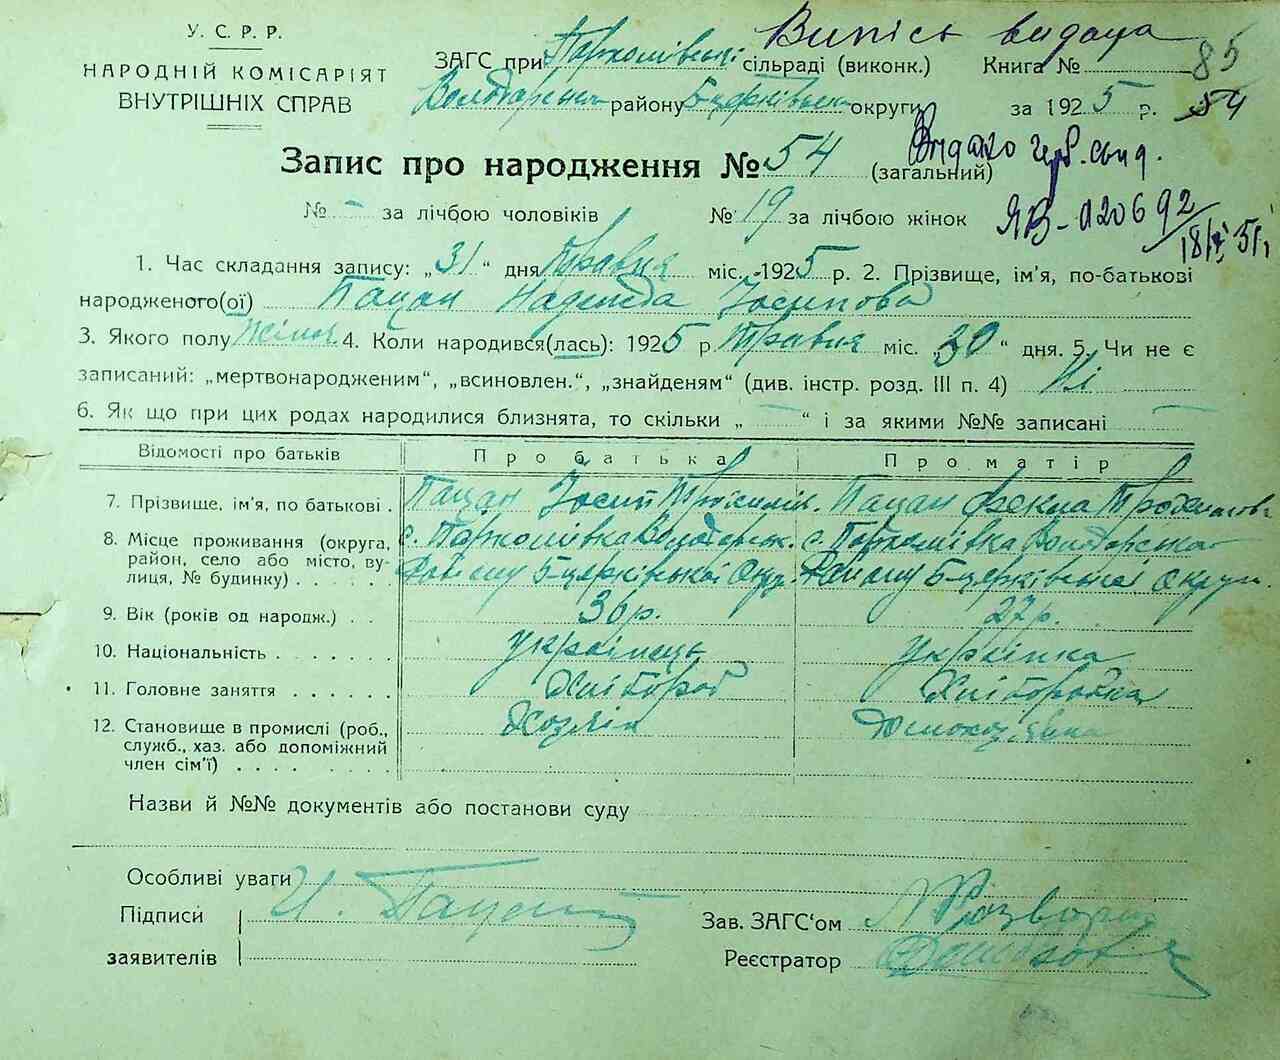 У. С. Р. Р.
НАРОДНІЙ КОМІСАРІЯТ
ВНУТРІШНІХ СПРАВ
Випись видана
ЗАГС при Пархомівські сільраді (виконк.) Книга № 85
району Б-церківськ округи за 1925 р. 54
Запис про народження № 54 (загальний)
Видано
№ - за лічбою чоловіків № 19 за лічбою жінок
ЯВ-020692
1. Час складання запису: „31“ дня Травня міс. 1925 р. 2. Прізвище, ім'я, по-батькові
народженого(ої) Пацан Надежда Йосипова
3. Якого полу Жіноч. 4. Коли народився(лась): 1925 р Травня міс. „30“ дня. 5. Чи не є
записаний: „мертвонародженим“, „всиновлен.“, „знайденям“ (див. інстр. розд. III п. 4) Ні
6. Як що при цих родах народилися близнята, то скільки „ — “ і за якими №№ записані —
Відомості про батьків Про батька Про матір
7. Прізвище, ім'я, по батькові . Пацан Йосип Пацан Фекла
8. Місце проживання (округа, с. Пархомівка Володарськ. с. Пархомівка Володарська
район, село або місто, ву-
лиця, № будинку) . . . . Району Б-церківської Окр. Району Б-церківської Округи.
9. Вік (років од народж.) . . 36 р. 27 р.
10. Національність . . . . . . . українець українка
11. Головне заняття . . . . . . Хлібороб Хліборобка
12. Становище в промислі (роб., Хозяїн Домохозяйка
служб., хаз. або допоміжний
член сім'ї) . . . . . . . .
Назви й №№ документів або постанови суду
Особливі уваги
Підписи И. Пацан
Зав. ЗАГС'ом
заявителів
Реєстратор